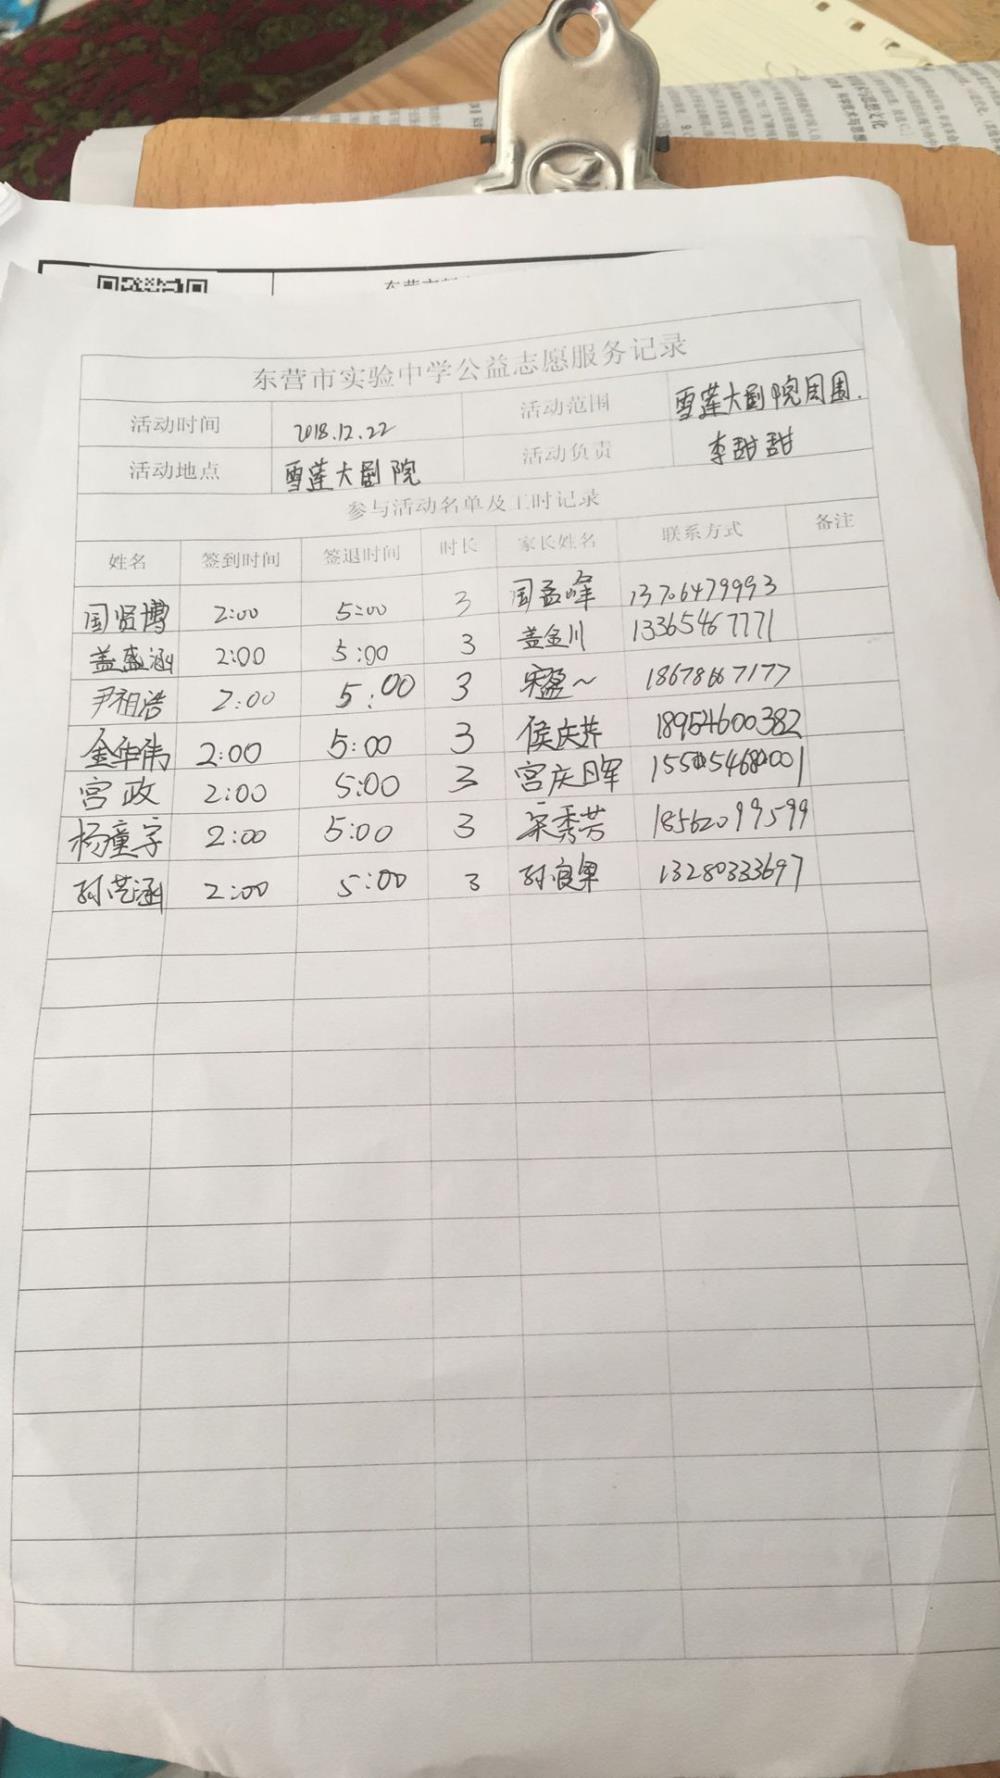 东营市实验中学公益志愿服务记录
活动时间 2018.12.22 活动范围 雪莲大剧院周围.
活动地点 雪莲大剧院 活动负责 李甜甜
参与活动名单及工时记录
姓名 签到时间 签退时间 时长 家长姓名 联系方式 备注
国贤博 2:00 5:00 3 国孟峰 13706479993
盖盛涵 2:00 5:00 3 盖金川 13365467771
尹祖浩 2:00 5:00 3 18678667177
金华伟 2:00 5:00 3 侯庆萍 18954600382
宫政 2:00 5:00 3 宫庆晖
杨童宇 2:00 5:00 3 宋秀芳 18562099599
孙艺涵 2:00 5:00 3 孙良果 13280333697